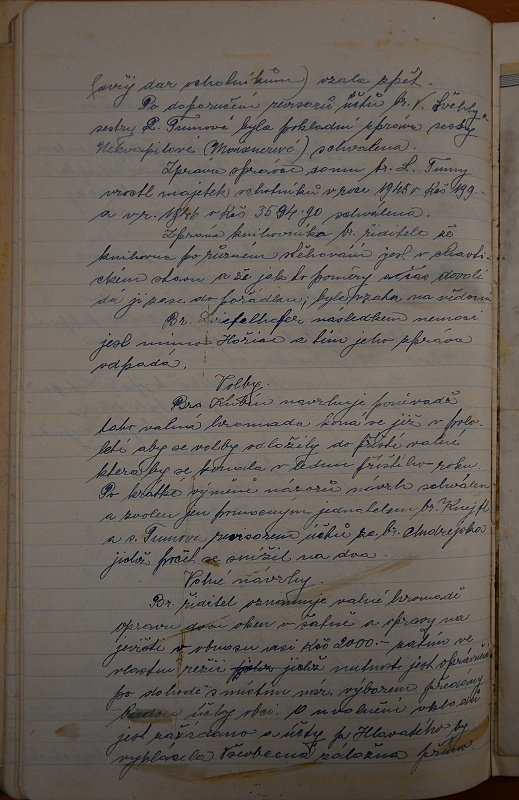 svůj dar ochotníkům) vzala zpět.
Po doporučení revisorů účtů br. V. Švehly a
sestry L. Tumové byla pokladní zpráva sestry
Nekvapilové (Morávcové) schválena.
Zpráva správce domu br. L. Tumy
vzrostl majetek ochotníků v roce 1945 o Kčs 199.-
a v r. 1946 o Kčs 3594.90 schválena.
Zpráva knihovníka br. řiditele že
knihovna po různém stěhování jest v chaoti-
ckém stavu a že jak to poměry a čas dovolí
dá ji zase do pořádku, byla vzata na vědomí
Br. následkem nemoci
jest mimo Hořice a tím jeho zpráva
odpadá.
Volby.
Bra navrhuje poněvadž
tato valná hromada koná se již v polo-
letí aby se volby odložily do příští valné
která by se konala v lednu příštího roku.
Po krátké výměně názorů návrh schválen
a zvolen jen pomocným jednatelem br. Knejfl
a s. Tumova revisorem účtů za br. Andrejska
jichž počet se snížil na dva.
Volné návrhy.
Br. řiditel oznamuje valné hromadě
opravu oken v šatně a opravy na
jevišti v obnosu asi Kčs 2000.- zatím ve
vlastní režii jichž nutnost jest oprávněná
po dohodě s místním nár. výborem předány
účty obci. O uvolnění vkladů
jest zažádáno a účty p. Hlavatého by
vyplácela Všeobecná záložna přímo.